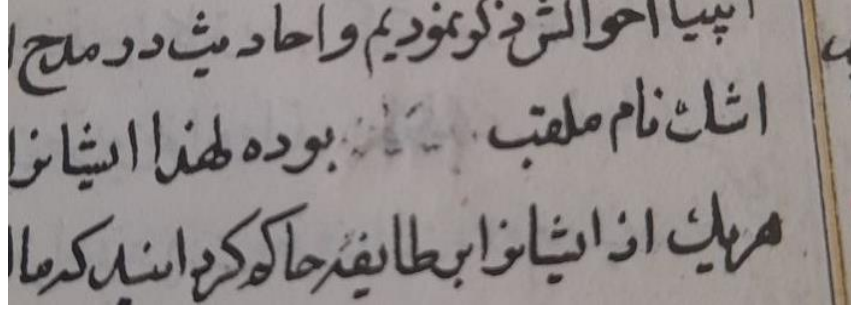 احوالش ذکر نمودیم و احادیث در مدح
اشان نام ملقب بوده لهذا ایشانرا
هریک از ایشانرا بر طایفه حاکم کردانید که ما